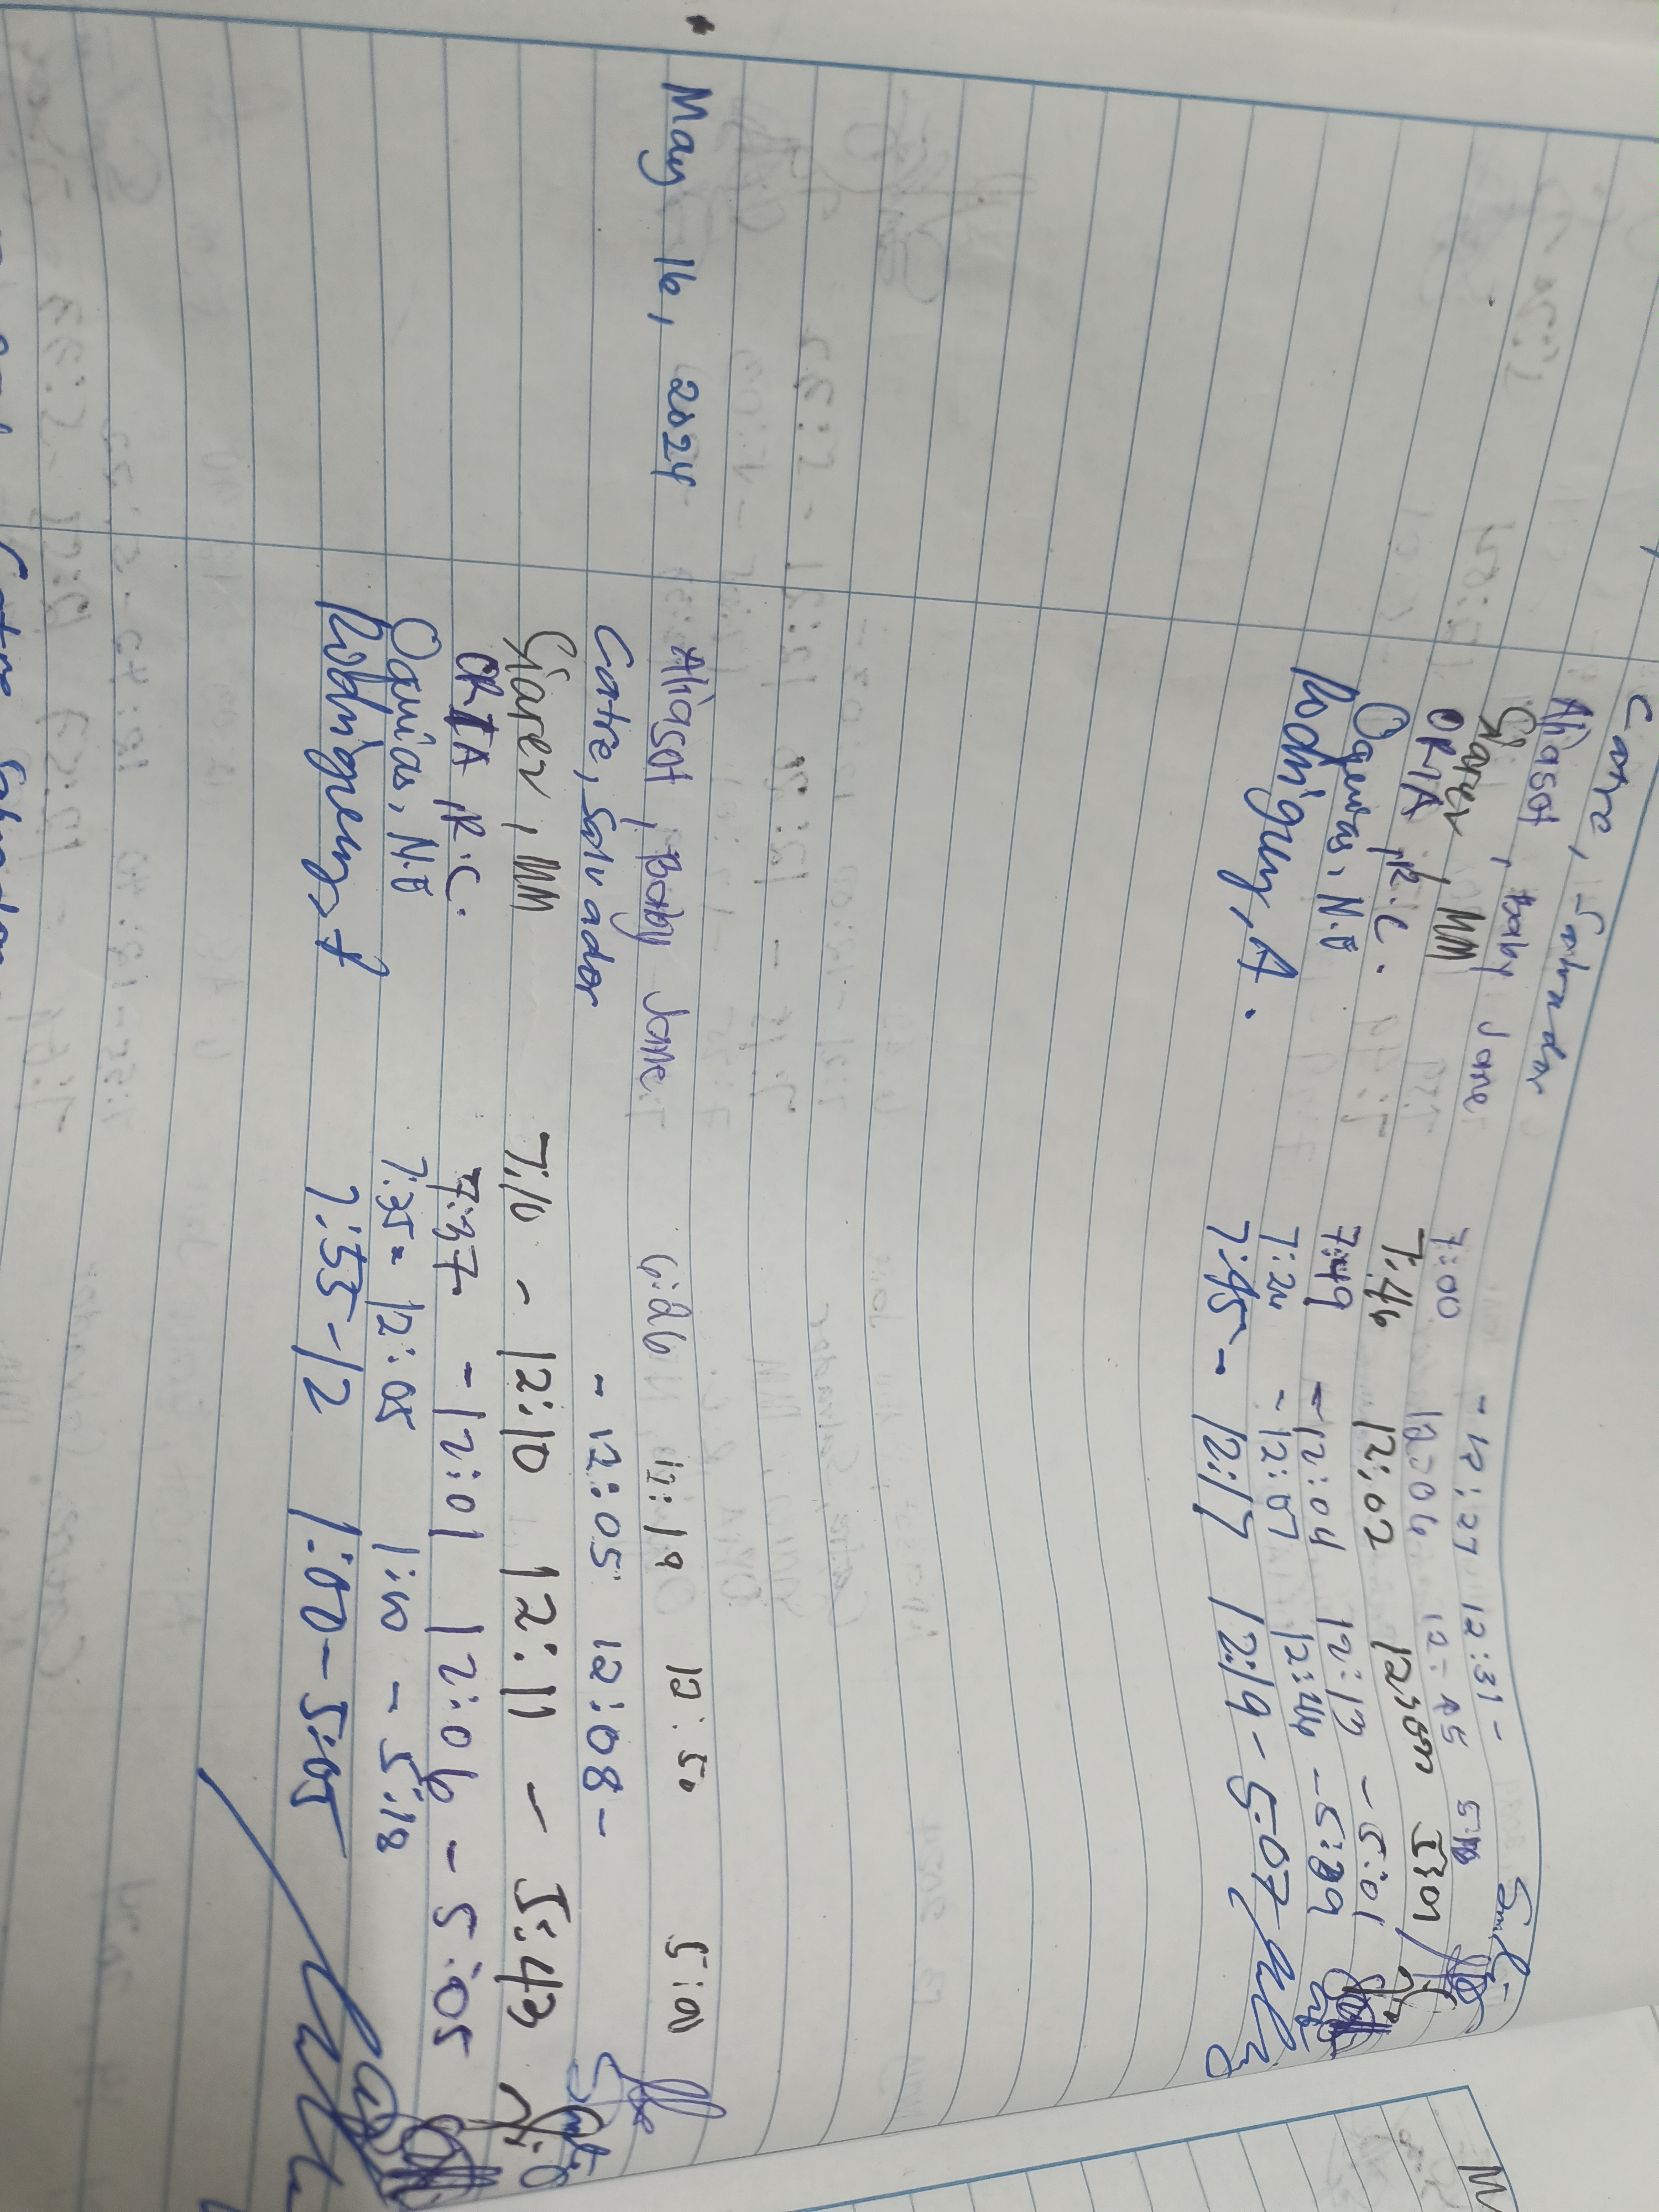 Catre, Salvador - 12:27 12:31 -
Aliasot, Baby Jane 7:00 12:06 12:45
Giarer, MM 7:46 12:02 5:01
ORIA, R.C. 7:49 - 12:04 12:13 - 5:01
Oquias, N.B 7:24 - 12:07 12:44 - 5:39
Rodriguez, A. 7:45 - 12:17 12:19 - 5:07
May 16, 2024 Aliasot, Baby Jane 6:26 12:19 12:50 5:00
Catre, Salvador - 12:05 12:08 -
Giarer, MM 7:10 - 12:10 12:11 - 5:43
ORIA, R.C. 7:37 - 12:01 12:06 - 5:05
Oquias, N.B 7:35 - 12:05 1:00 - 5:18
Rodriguez, A 7:55 - 12 1:00 - 5:05
Catre, Salvador